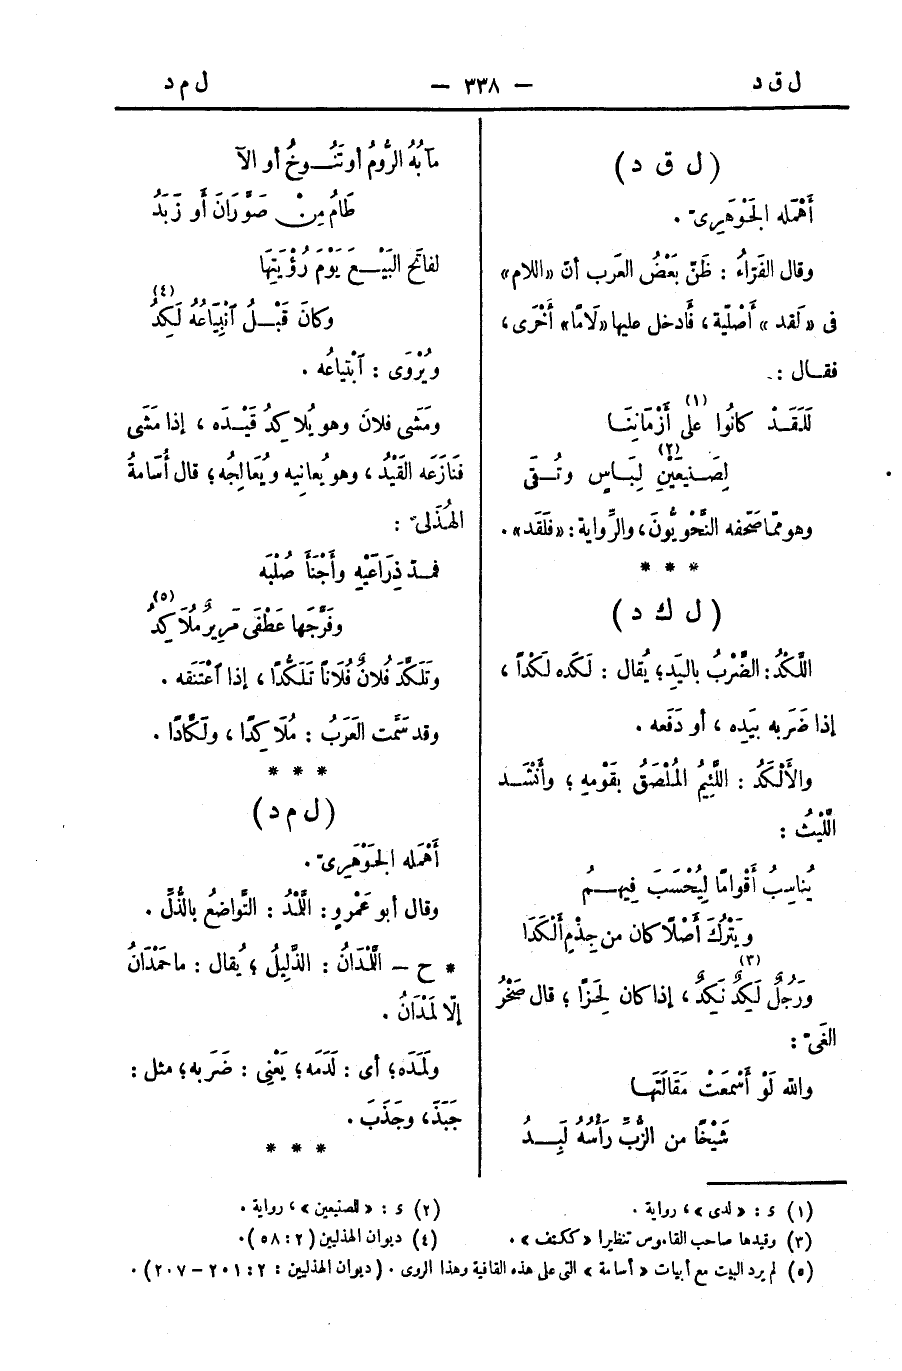 ل ق د
— ٣٣٨ —
ل م د
(ل ق د)
أَهْمَله الجَوْهَرِىّ .
وقال الفَرّاءُ : ظَنّ بَعْضُ العَرب أنّ «اللام»
فى «لَقد» أَصْلِيّة ، فَأدخل عليها «لَامًا» أُخْرَى ،
فقـال :
لَلَقَـدْ كانُوا علَى (١) أَزْمَانِنَـا
لِصَـنِيعَيْنِ (٢) لِبَـاسٍ وتُـقَى
وهو ممّا صَحّفه النَّحْوِيُّونَ ، والرِّواية : «فَلَقَد» .
* * *
(ل ك د)
اللَّكْدُ : الضَّرْبُ باليَدِ ؛ يُقال : لَكَده لَكْدًا ،
إذا ضَرَبه بيَدِه ، أو دَفَعه .
والأَلْكَدُ : اللَّئِيمُ المُلْصَقُ بقَوْمِهِ ؛ وأَنْشَـد
اللَّيْثُ :
يُناسِبُ أَقْوامًا لِيُحْسَبَ فِيهِـمُ
ويَتْرُكَ أَصْلًا كان من جِذْمِ أَلْكَدَا
ورَجُلٌ لَكِدٌ (٣) نَكِدٌ ، إذا كان لَحِزًا ؛ قال صَخْرُ
الغَىّ :
والله لَوْ أَسْمَعَتْ مَقَالَتَها
شَيْخًا من الزُّبِّ رَأْسُهُ لَبِـدُ
مآبُهُ الرُّومُ أو تَنُـوخُ أو الآ
طَامُ مِنْ صَوَّرَانَ أو زَبَدُ
لفاتَحَ البَيْـعَ يَوْمَ رُؤْيَتِها
وكانَ قَبْـلُ ٱنْبِيَاعُهُ لَكِدُ (٤)
ويُرْوَى : ٱبْتياعُه .
ومَشَى فلانٌ وهو يُلاكِدُ قَيْـدَه ، إذا مَشَى
فَنَازَعَه القَيْدُ ، وهو يُعانِيه ويُعَالِجُه ؛ قال أُسَامةُ
الهُذَلىّ :
فمـدّ ذِرَاعَيْهِ وأَجْنَأَ صُلْبَه
وفَرَّجَها عَطْفَى مَرِيرٌ مُلَاكِدُ (٥)
وتَلَكَّدَ فُلانٌ فُلَاناً تَلَكُّدًا ، إذا ٱعْتَنَقه .
وقد سَمَّت العَرَبُ : مُلَاكِدًا ، ولَكَّادًا .
* * *
(ل م د)
أَهْمَله الجَوْهَرِىّ .
وقال أبو عَمْرٍو : اللَّمْدُ : التَّواضُعُ بالذُّلِّ .
* ح – اللَّمْدَانُ : الذَّلِيلُ ؛ يُقال : ما حَمْدَانُ
إلّا لَمْدَانُ .
ولَمَدَه ؛ أى : لَدَمَه ؛ يَعْنِى : ضَرَبه ؛ مثل :
جَبَذَ ، وجَذَبَ .
* * *
(١) د : «لدى» ، رواية . (٢) د : «للصنيعين» ، رواية .
(٣) وقيدها صاحب القاموس تنظيرا «ككتف» . (٤) ديوان الهذليين (٢ : ٥٨) .
(٥) لم يرد البيت مع أبيات «أسامة» التى على هذه القافية وهذا الروى . (ديوان الهذليين : ٢ : ٢٠١ – ٢٠٧) .